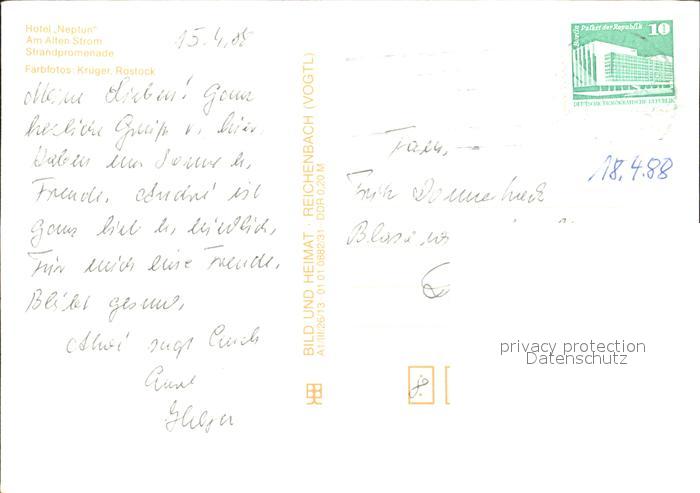 Hotel „Neptun"
Am Alten Strom
Strandpromenade
Farbfotos: Krüger, Rostock
15.4.88
Meine Lieben! Ganz
herzliche Grüße v. hier.
Haben nur Sonne u.
Freude. André ist
ganz lieb u. niedlich,
Für mich eine Freude.
Bleibt gesund,
Ahoi sagt Euch
Eure
BILD UND HEIMAT · REICHENBACH (VOGTL)
A1/III/26/13 01 01 0882/31 DDR 0,20 M
Berlin Palast der Republik 10
DEUTSCHE DEMOKRATISCHE REPUBLIK
18.4.88
Fam.
privacy protection
Datenschutz